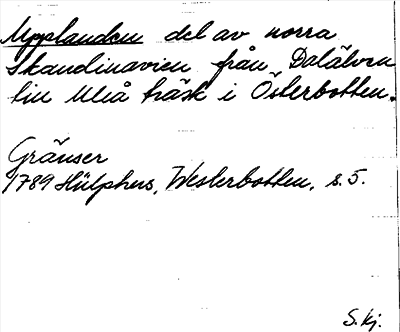 Upplanden del av norra
Skandinavien från Dalälven
till Uleå träsk i Österbotten.
Gränser
1789 Hülphers, Westerbotten, s. 5.
S. kj.